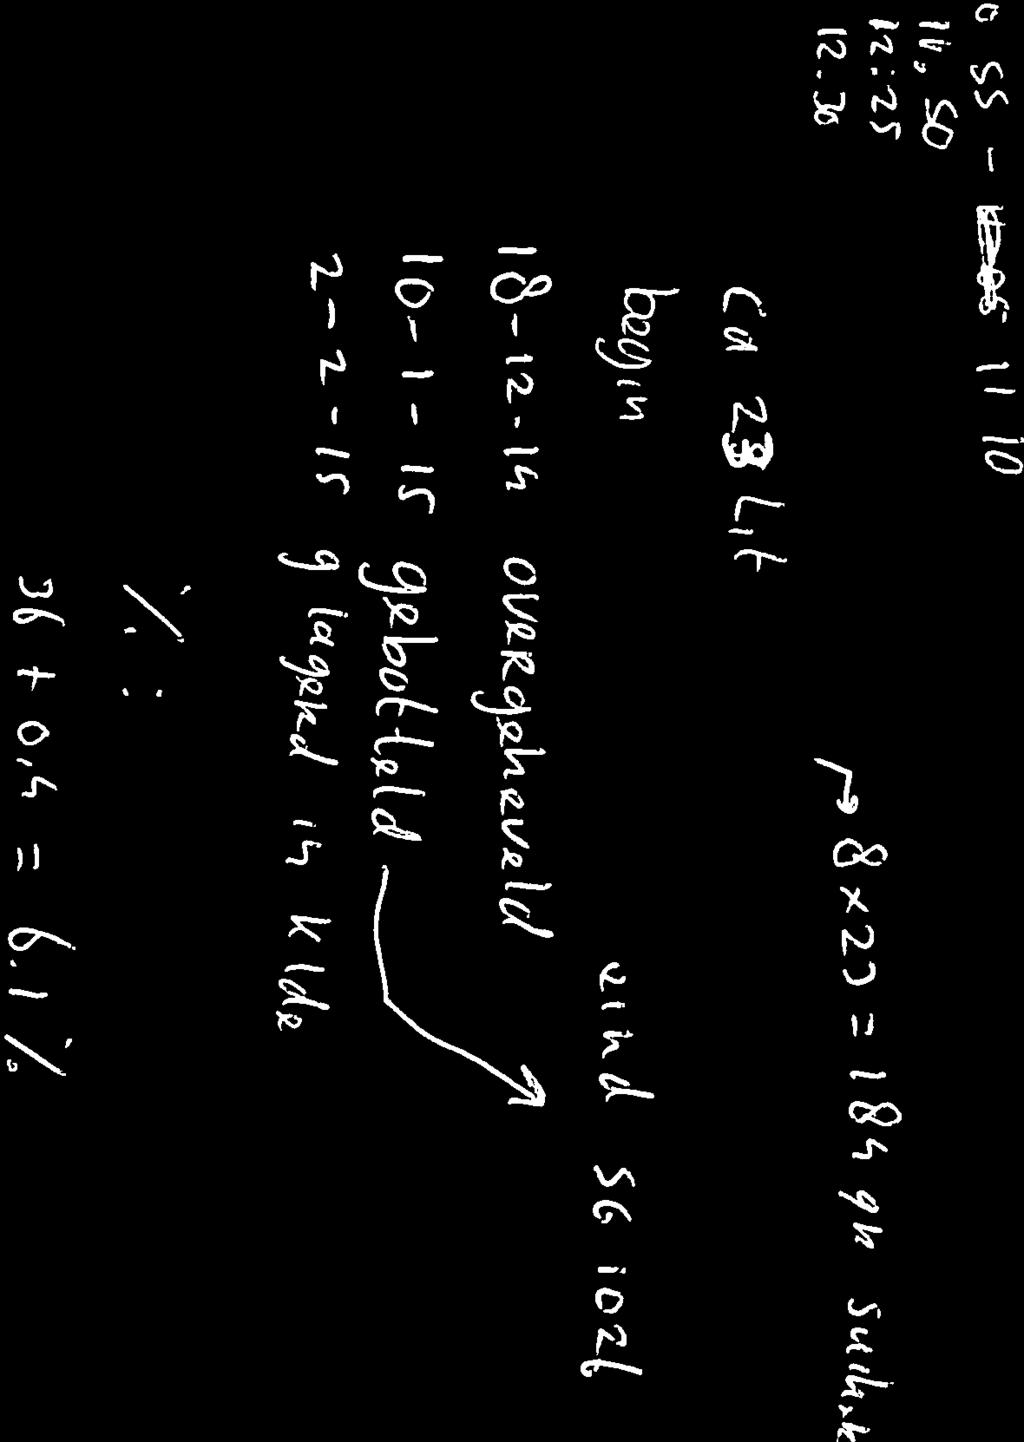 0 55 - 11 10
11,50
12:25
12.30
→ 8 x 23 = 184 gr suiker
Ca 23 Lit
begin
eind SG 1026
18-12-14 overgeheveld
10-1-15 gebotteld
2-2-15 gelagerd in kelde
% :
36 + 0,4 = 6.1 %